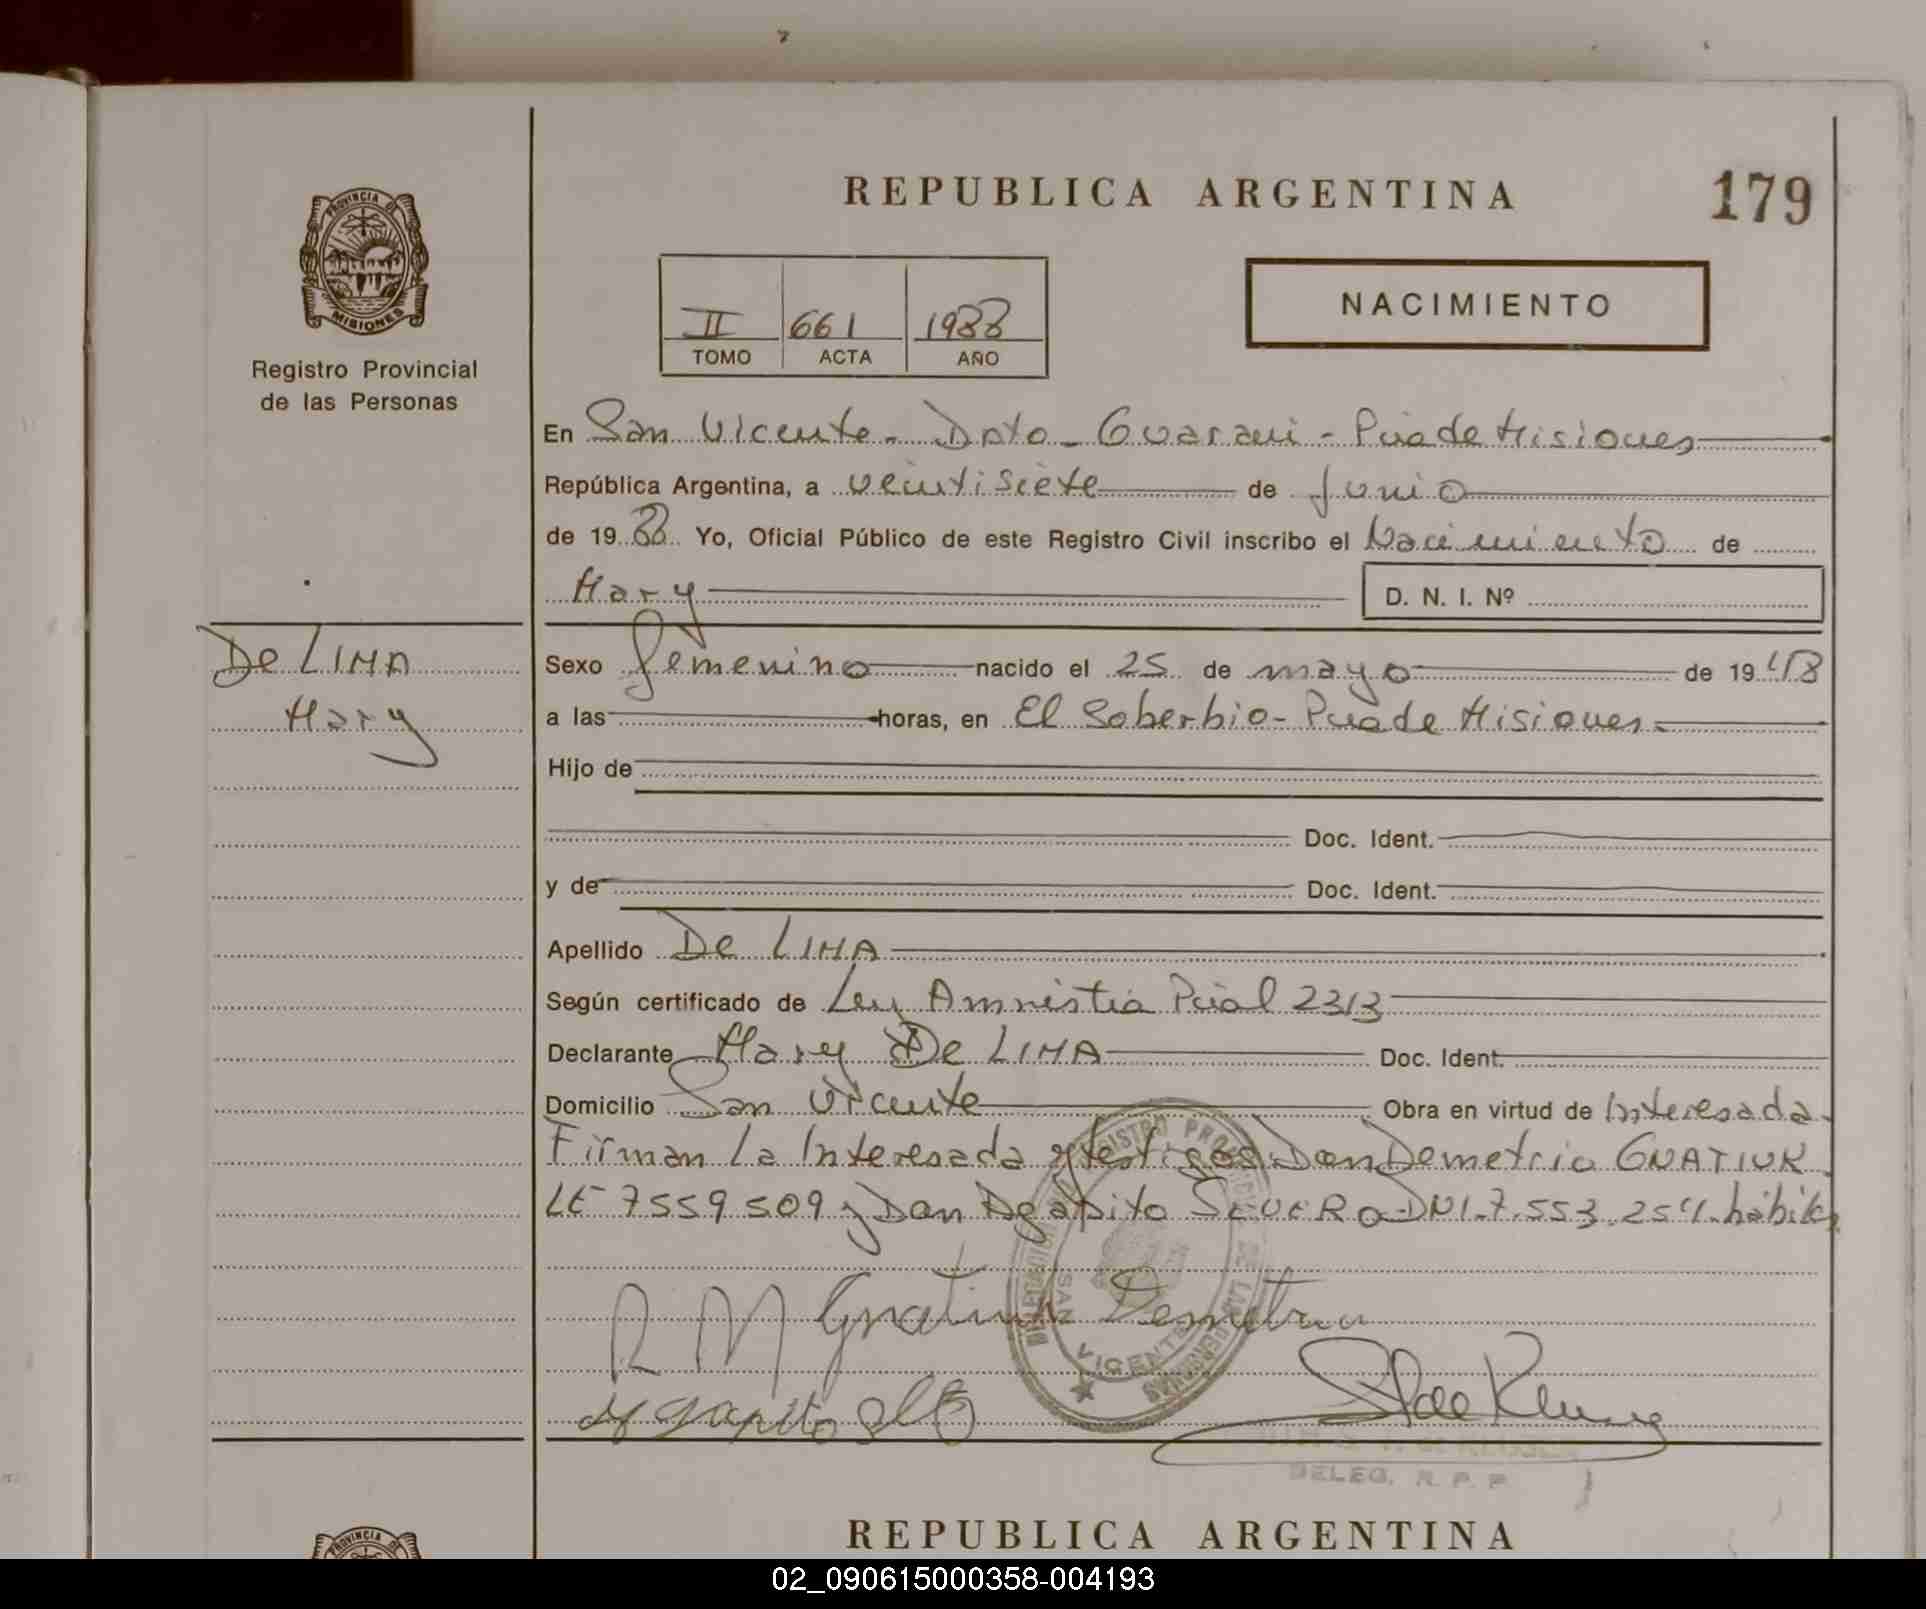 REPUBLICA ARGENTINA
179
PROVINCIA DE
MISIONES
Registro Provincial
de las Personas
II 661 1988
TOMO ACTA AÑO
NACIMIENTO
En San Vicente - Dpto - Guarani - Pcia de Misiones
República Argentina, a veintisiete de Junio
de 1988 Yo, Oficial Público de este Registro Civil inscribo el Nacimiento de
Mary D. N. I. Nº
De LIMA
Mary
Sexo femenino nacido el 25 de mayo de 1948
a las horas, en El Soberbio - Pcia de Misiones.
Hijo de
Doc. Ident.
y de Doc. Ident.
Apellido De LIMA
Según certificado de Ley Amnistia Pcial 2313
Declarante Mary De LIMA Doc. Ident.
Domicilio San Vicente Obra en virtud de Interesada.
Firman La Interesada y testigos Don Demetrio GNATIUK
LE 7559509 y Don Agapito SEVERO DNI. 7.553.254. hábiles
Gnatiuk Demetrio
Agapito
SAN VICENTE
DELEG. R. P. P
PROVINCIA
REPUBLICA ARGENTINA
02_090615000358-004193